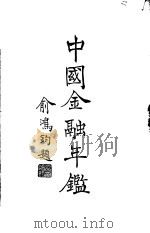 中國金融年鑑
俞鴻鈞題
mtoou.info